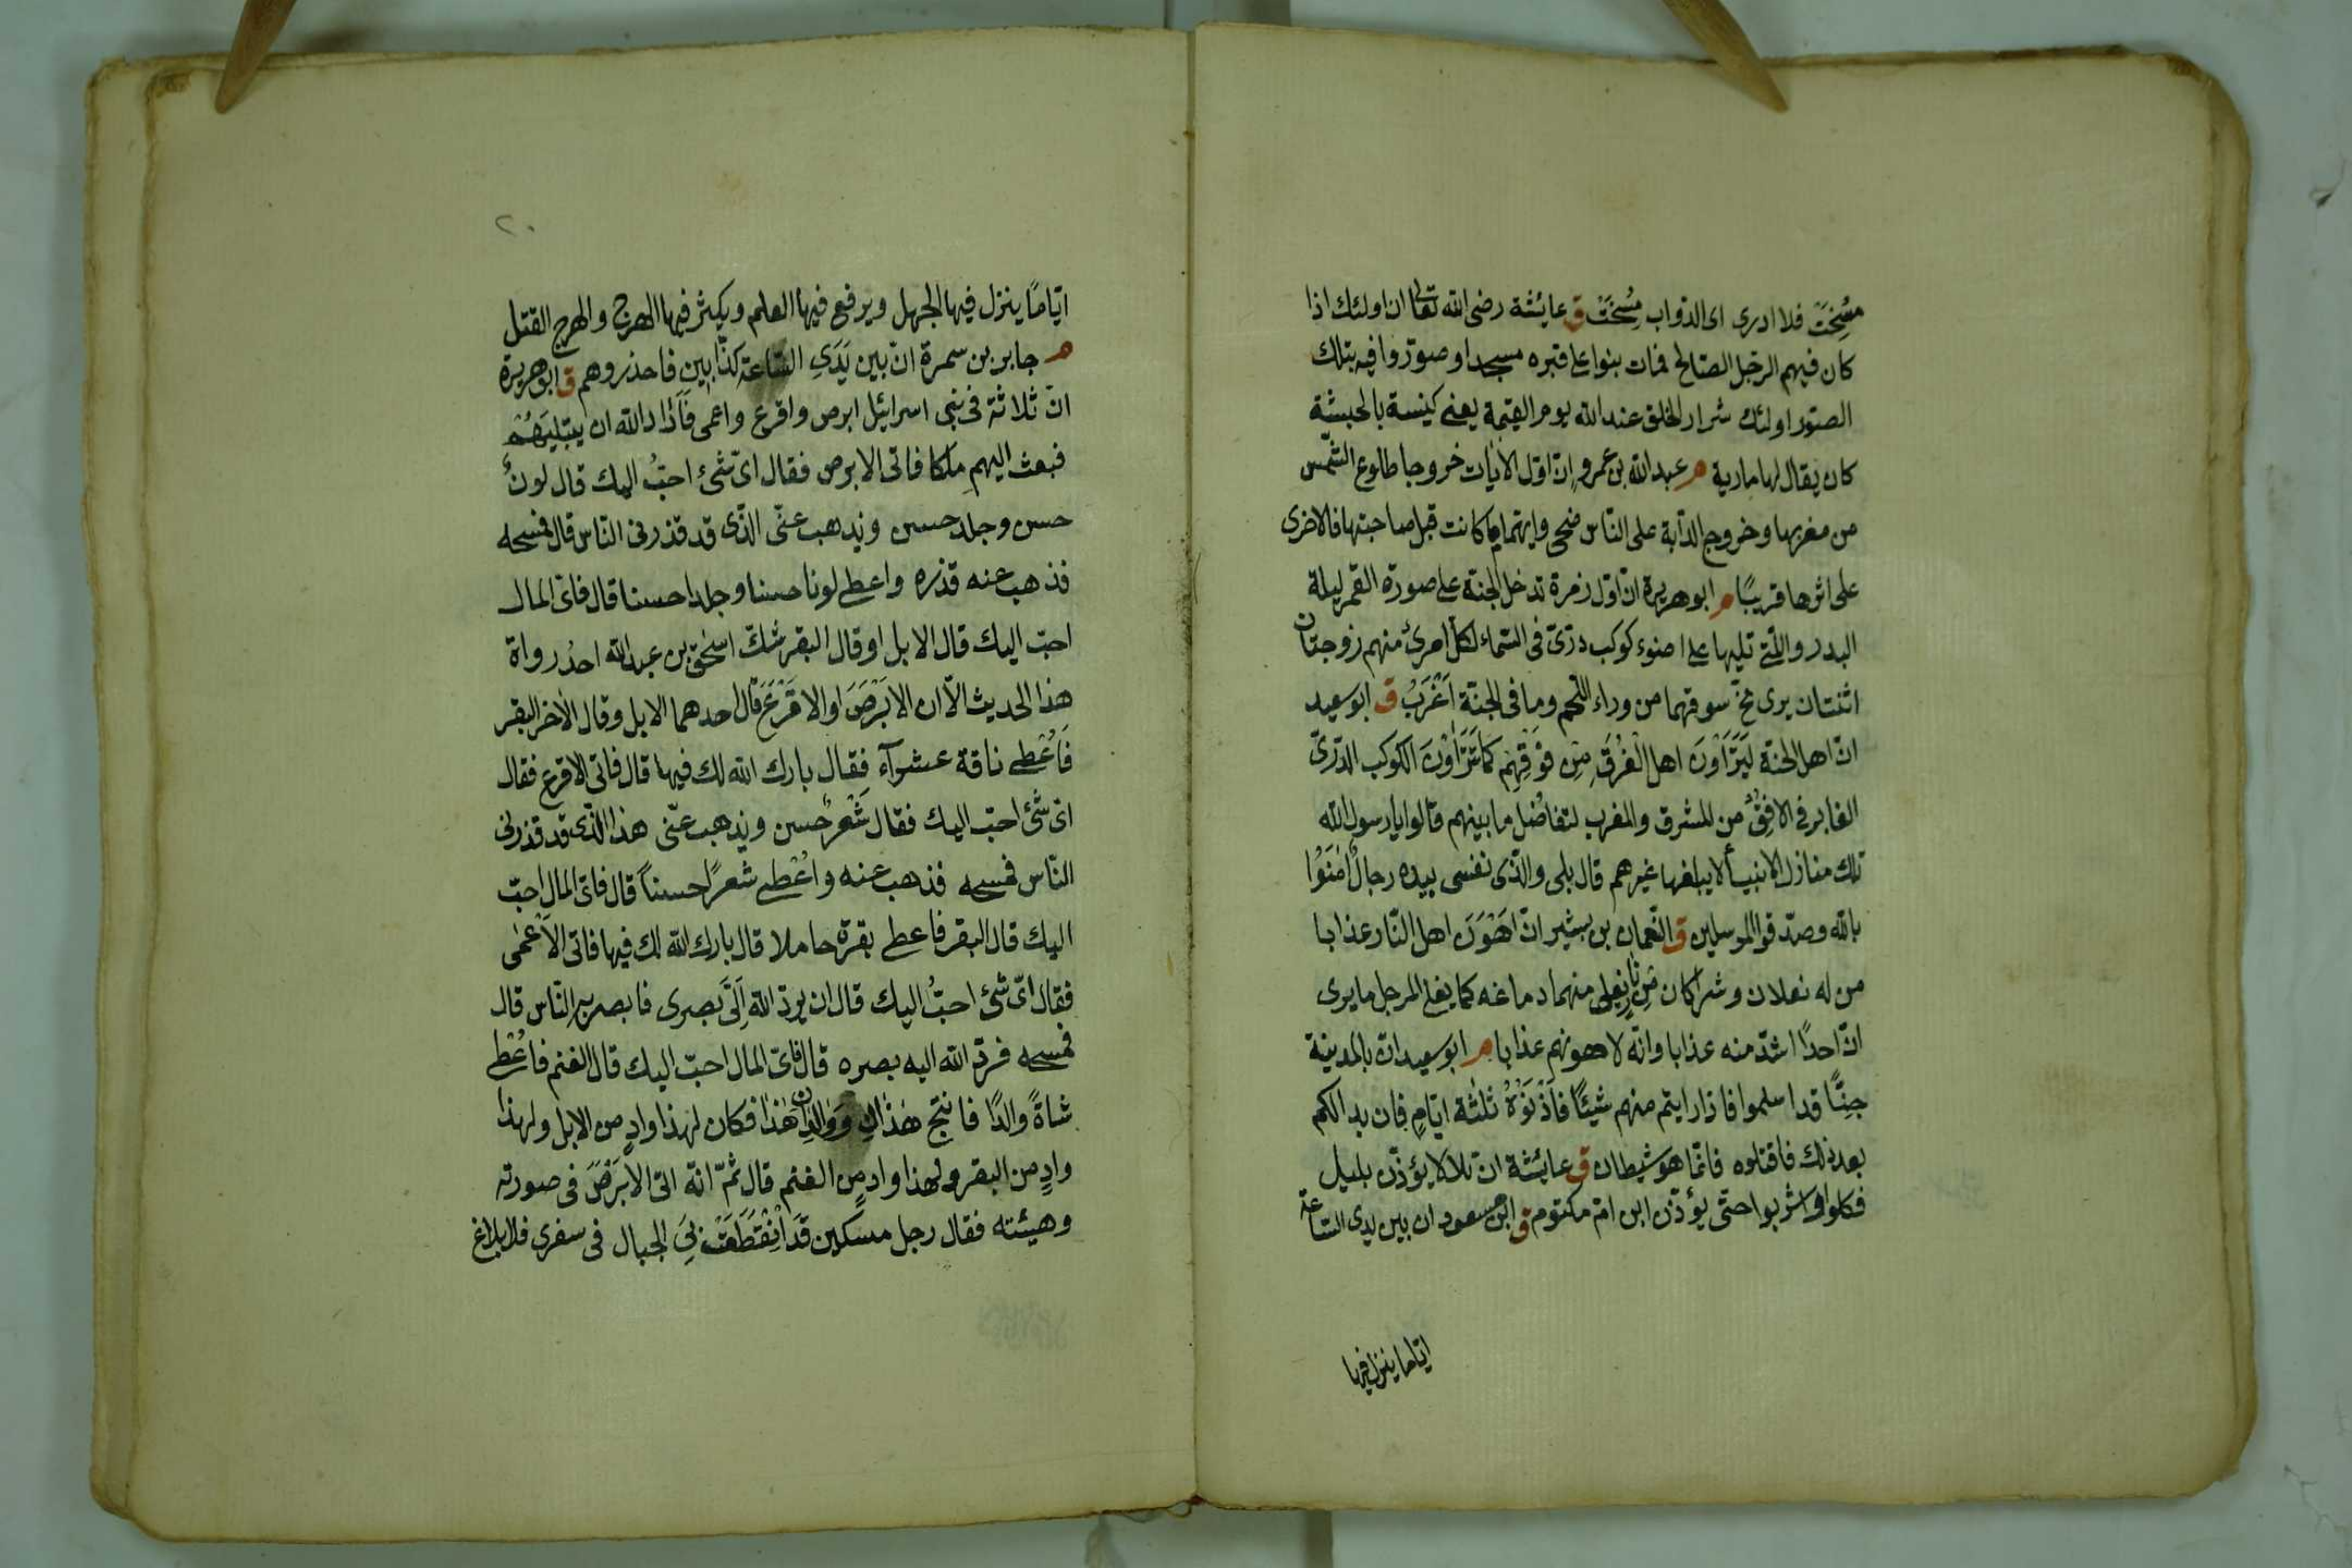 مُسِخَتْ فلا ادرى اى الدواب مُسِخَتْ ق عايشة رضى الله تعالى ان اولئك اذا
كان فيهم الرّجل الصّالح فمات بنوا على قبره مسجدا وصوّروا فيه بتلك
الصّور اولئك شرار الخلق عند الله يوم القيمة يعنى كنيسة بالحبشة
كان يقال لها مارية م عبد الله بن عمرو انّ اوّل الايات خروجا طلوع الشّمس
من مغربها وخروج الدّابة على النّاس ضحى وايتهما ما كانت قبل صاحبتها فالاخرى
على اثرها قريبًا م ابو هريرة انّ اوّل زمرة تدخل الجنة على صورة القمر ليلة
البدر والّتى تليها على اضوء كوكب درّىّ فى السّماء لكلّ امرئ منهم زوجتان
اثنتان يرى مخّ سوقهما من وراء اللّحم وما فى الجنّة اَعْزَبُ ق ابو سعيد
انّ اهل الجنة لَيَتَرَاَوْنَ اهل الْغُرَفِ مِنْ فَوْقِهِمْ كَمَا تَتَرَاوْنَ الكوكب الدّرّىّ
الغابر فى الافُق من المشرق والمغرب لتفاضُل ما بينهم قالوا يا رسول الله
تلك منازل الانبيأ لا يبلغها غيرهم قال بلى والّذى نفسى بيده رجالٌ اٰمَنُوا
بالله وصدّقوا المرسلين ق النّعمان بن بشير انّ اَهْوَنَ اهل النّار عذابا
من له نعلان وشراكان مِن نارٍ يغلى منهما دماغه كما يغلى المرجل ما يرى
انّ احدًا اشدّ منه عذابا وانّه لاهونهم عذابا م ابو سعيد انّ بالمدينة
جِنًّا قد اسلموا فاذا رايتم منهم شيئًا فَاٰذِنُوهُ ثلٰثة ايّامٍ فان بدا لكم
بعد ذلك فاقتلوه فانّما هو شيطان ق عايشة انّ بلالا يؤذّن بليل
فكلوا واشربوا حتى يؤذّن ابن امّ مكتوم ق ابن مسعود ان بين يدى السّاعة
ايّاما ينزل فيها
٢٠
ايّامًا ينزل فيها الجهل ويرفع فيها العلم ويكثر فيها الهرج والهرج القتل
م جابر بن سمرة انّ بين يَدَىِ السّاعة كذّابين فاحذروهم ق ابو هريرة
انّ ثلاثة فى بنى اسرائيل ابرص واقرع واعمى فَاَرَادَ الله ان يبتليَهُمْ
فبعث اليهم ملكا فاتى الابرص فقال اىّ شئ احبُّ اليك قال لونٌ
حسن وجلد حسن ويذهب عنّى الّذى قد قذرنى النّاس قال فمسحه
فذهب عنه قذره واعطى لونا حسنا وجلدا حسنا قال فاىّ المال
احبّ اليك قال الابل او قال البقر شكّ اسحٰق بن عبد الله احدُ رواة
هذا الحديث الاّ ان الابرَصَ او الاقرَعَ قال احدهما الابل وقال الاٰخر البقر
فَاُعْطى ناقة عشرآء فقال بارك الله لك فيها قال فاتى الاقرع فقال
اىّ شئ احبّ اليك فقال شَعْرٌ حسن ويذهب عنّى هذا الّذى قد قذرنى
النّاس فمسحه فذهب عنه واُعْطى شعرًا حسناً قال فاىّ المال احبّ
اليك قال البقر فاعطى بقرة حاملا قال بارك الله لك فيها فاتى الاَعْمى
فقال اىّ شئ احبُّ اليك قال ان يردّ الله اِلَىَّ بَصرى فابصر به النّاس قال
فمسحه فردّ الله اليه بصره قال فاىّ المال احبّ اليك قال الغنم فاُعْطى
شاةً والدًا فانتج هٰذان ووَلَّدَ هٰذا فكان لهذا وادٍ من الابل ولهذا
وادٍ من البقر ولهذا وادٍ من الغنم قال ثمّ انّه اتى الابرَصَ فى صورته
وهيئته فقال رجل مسكين قد اِنْقَطَعَتْ بِىَ الجبال فى سفرى فلا بلاغ